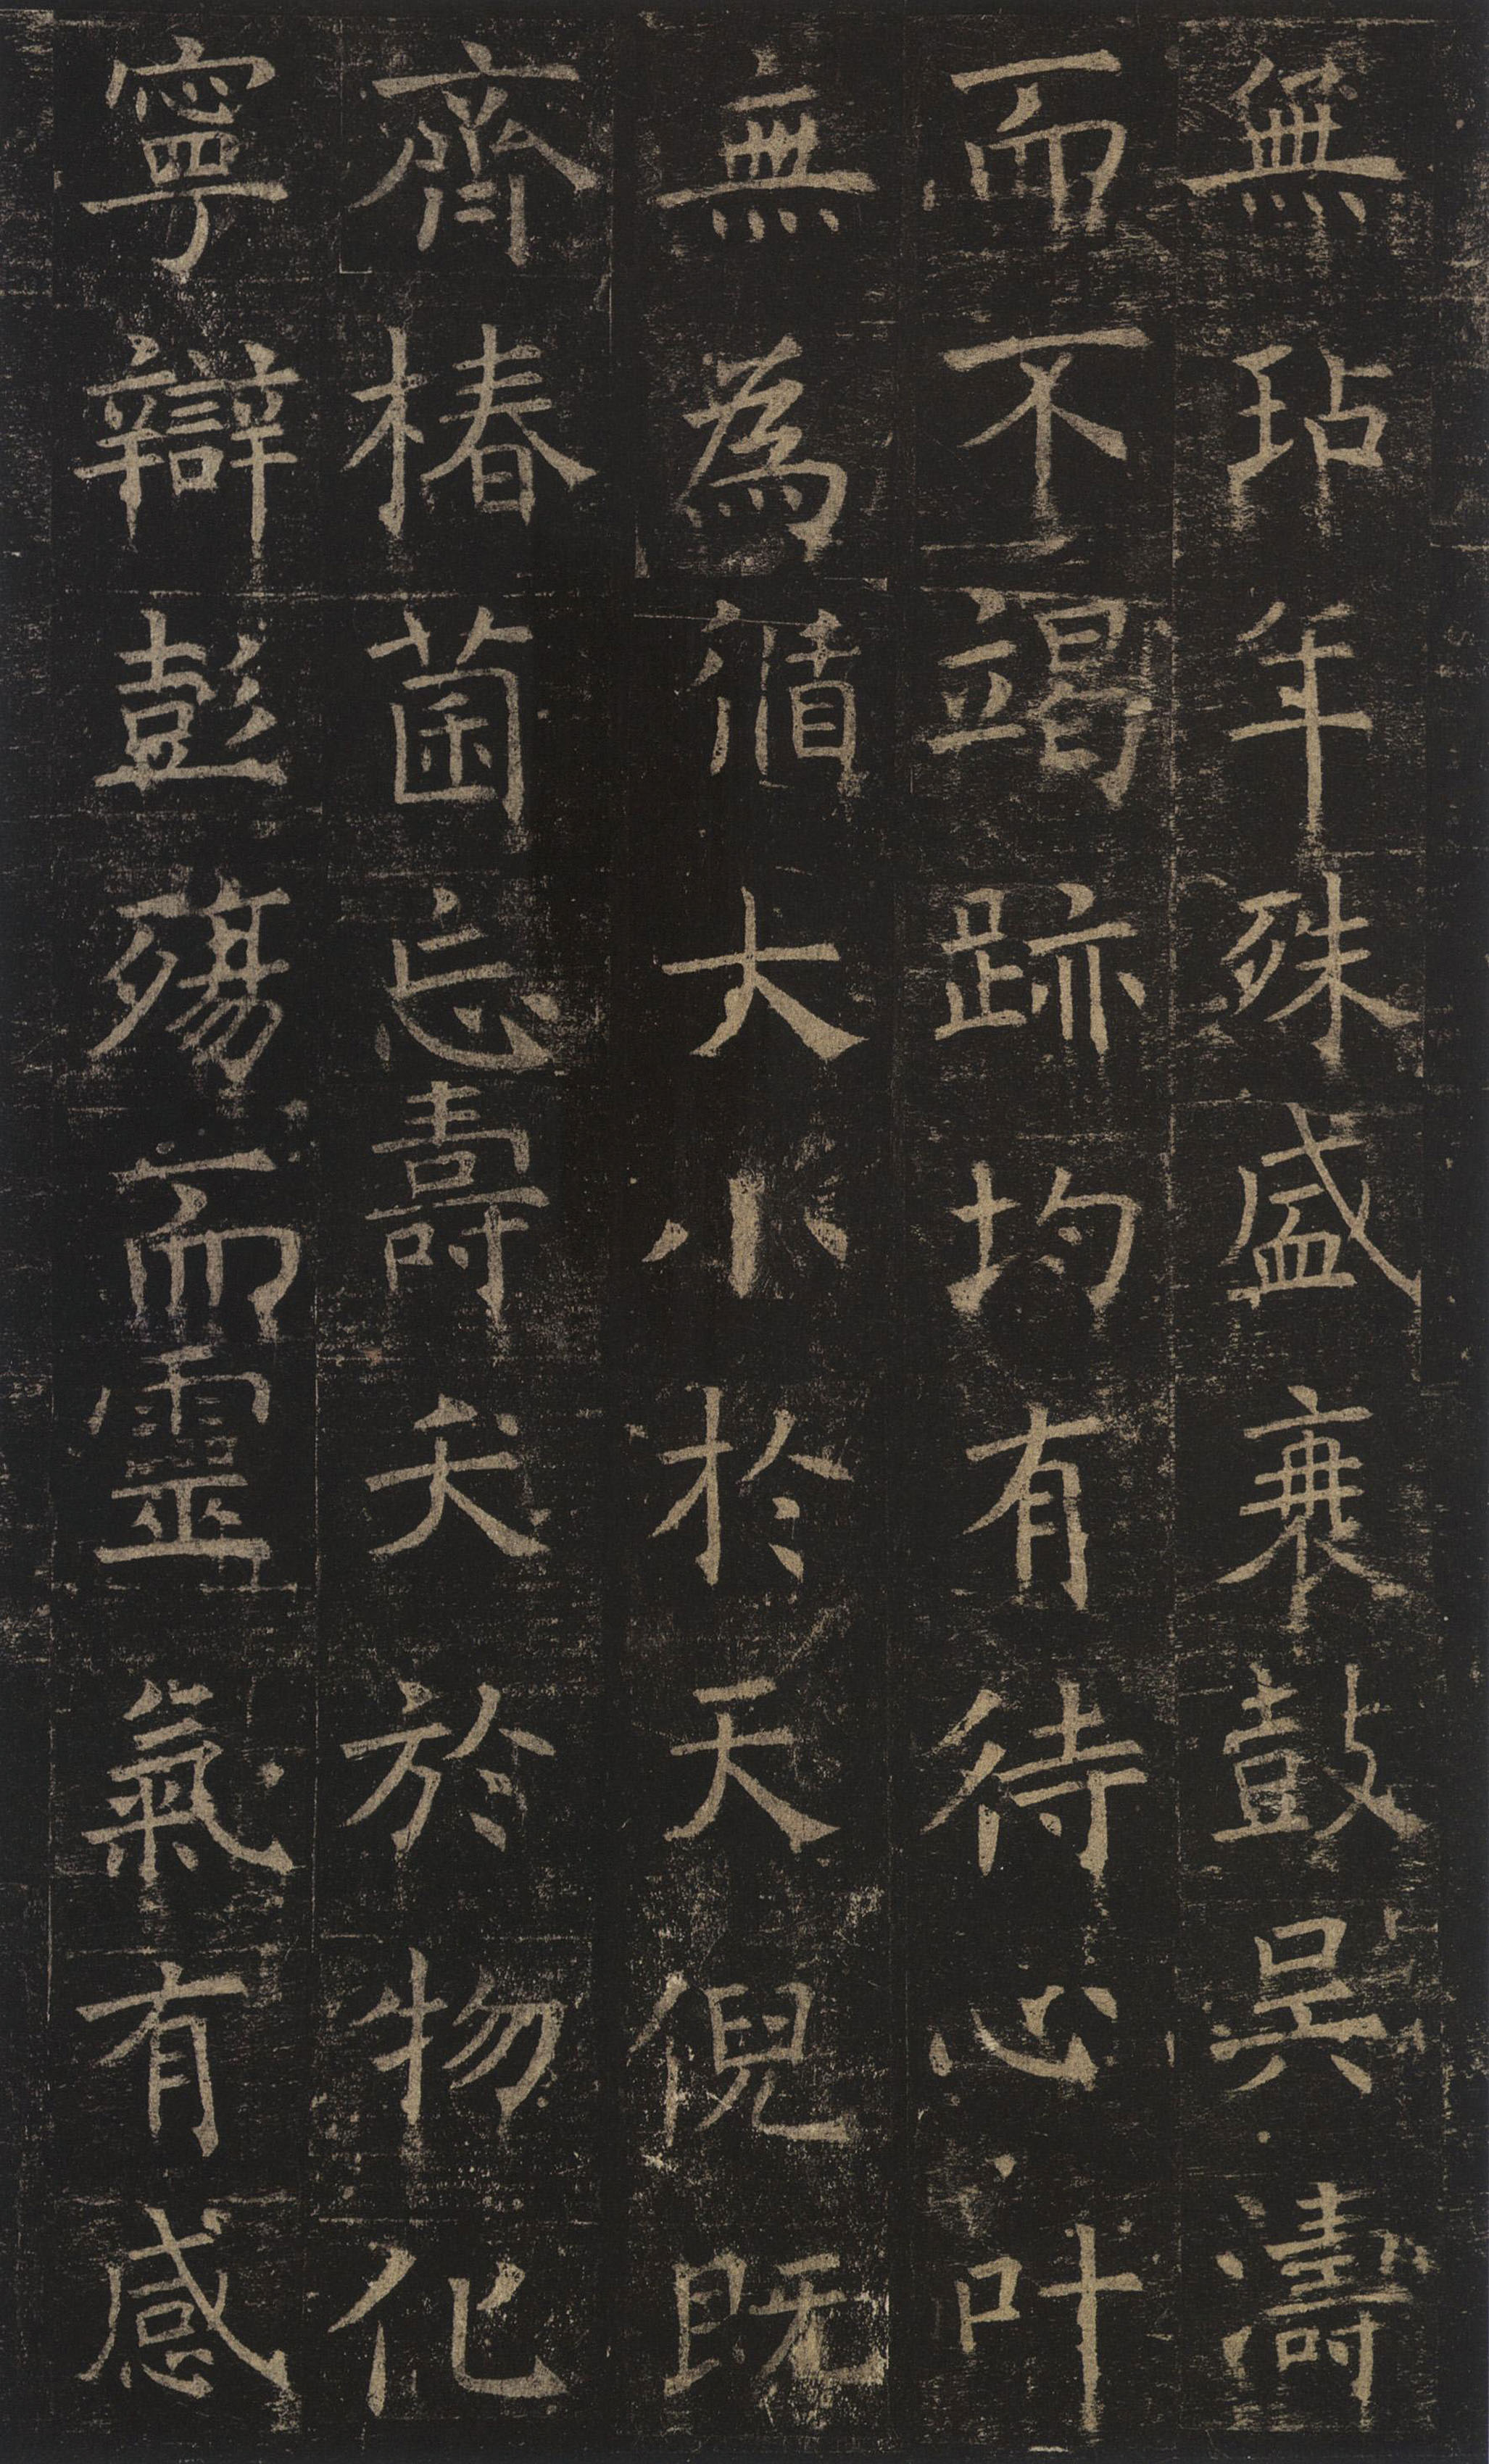 無玷年殊盛衰鼓吳濤
而不竭跡均有待心叶
無為循大小於天倪既
齊椿菌忘壽夭於物化
寧辯彭殤而靈氣有感